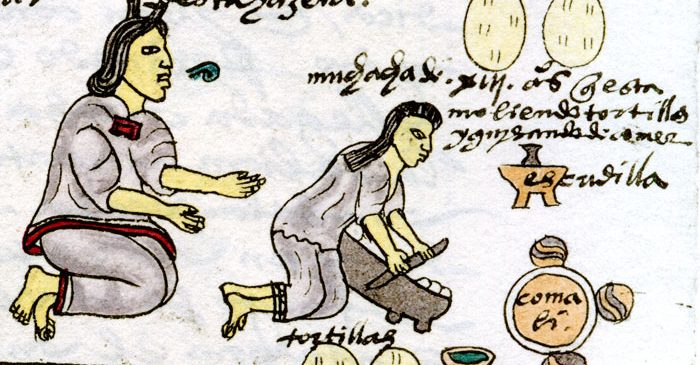 muchacha de . xiii . años q̃ esta
moliendo tortillas
y guisando de comer
escudilla
coma
li .
tortillas